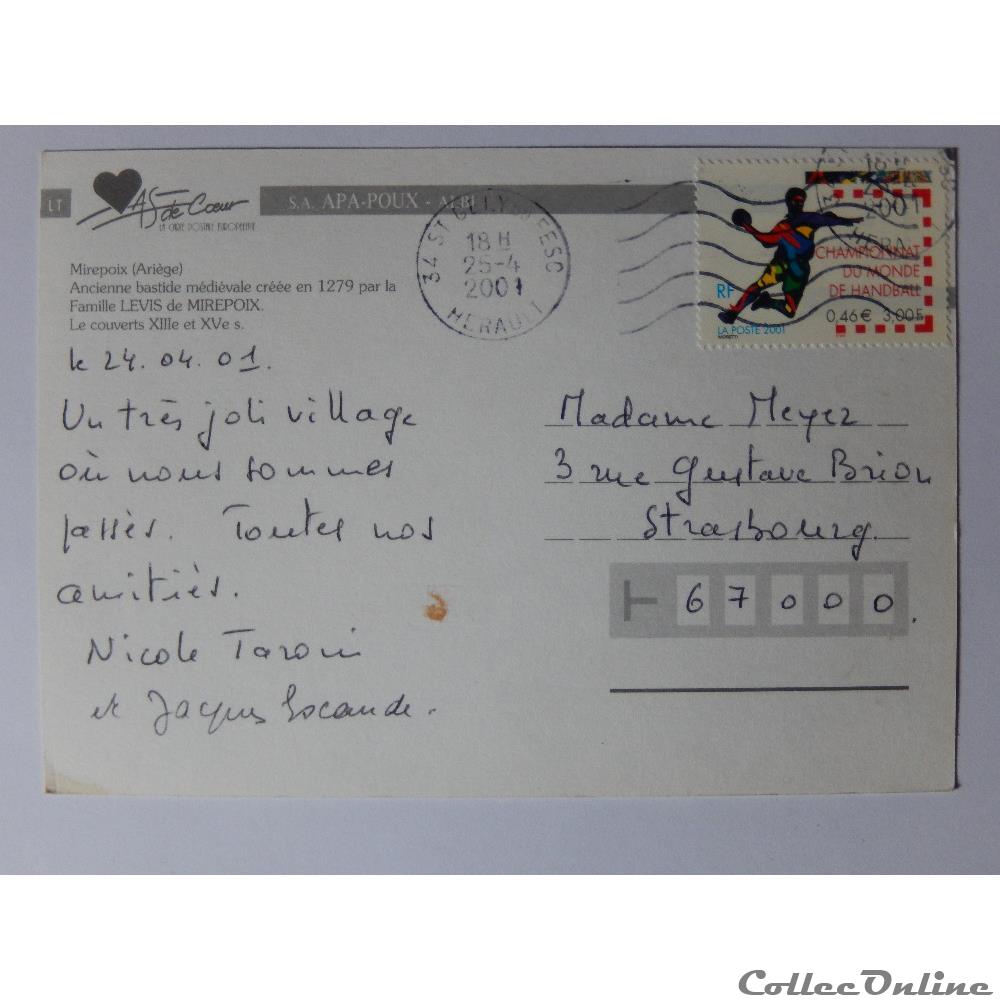 LT
AS de Cœur
LA CARTE POSTALE EUROPEENNE
S.A. APA-POUX - ALBI
Mirepoix (Ariège)
Ancienne bastide médiévale créée en 1279 par la
Famille LEVIS de MIREPOIX.
Le couverts XIIIe et XVe s.
34 ST GELY DU FESC
18 H
25-4
2001
HERAULT
2001
HERA
CHAMPIONNAT
DU MONDE
DE HANDBALL
RF
0,46 € 3,00 F
LA POSTE 2001
MORETTI
le 24.04.01.
Un très joli village
où nous sommes
passés. Toutes nos
amitiés.
Nicole Taroni
et Jacques Escande.
Madame Meyer
3 rue Gustave Brion
Strasbourg
67000
CollecOnline